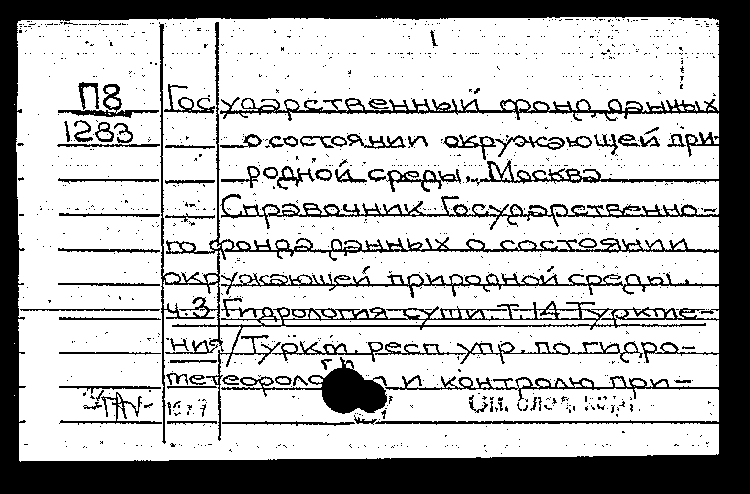 П8 Государственный фонд данных
1283 о состоянии окружающей при-
родной среды. Москва
Справочник Государственно-
го фонда данных о состоянии
окружающей природной среды.
ч.3 Гидрология суши. Т.14 Туркме-
ния/Туркм. респ. упр. по гидро-
и контролю при-
См. след. карт.